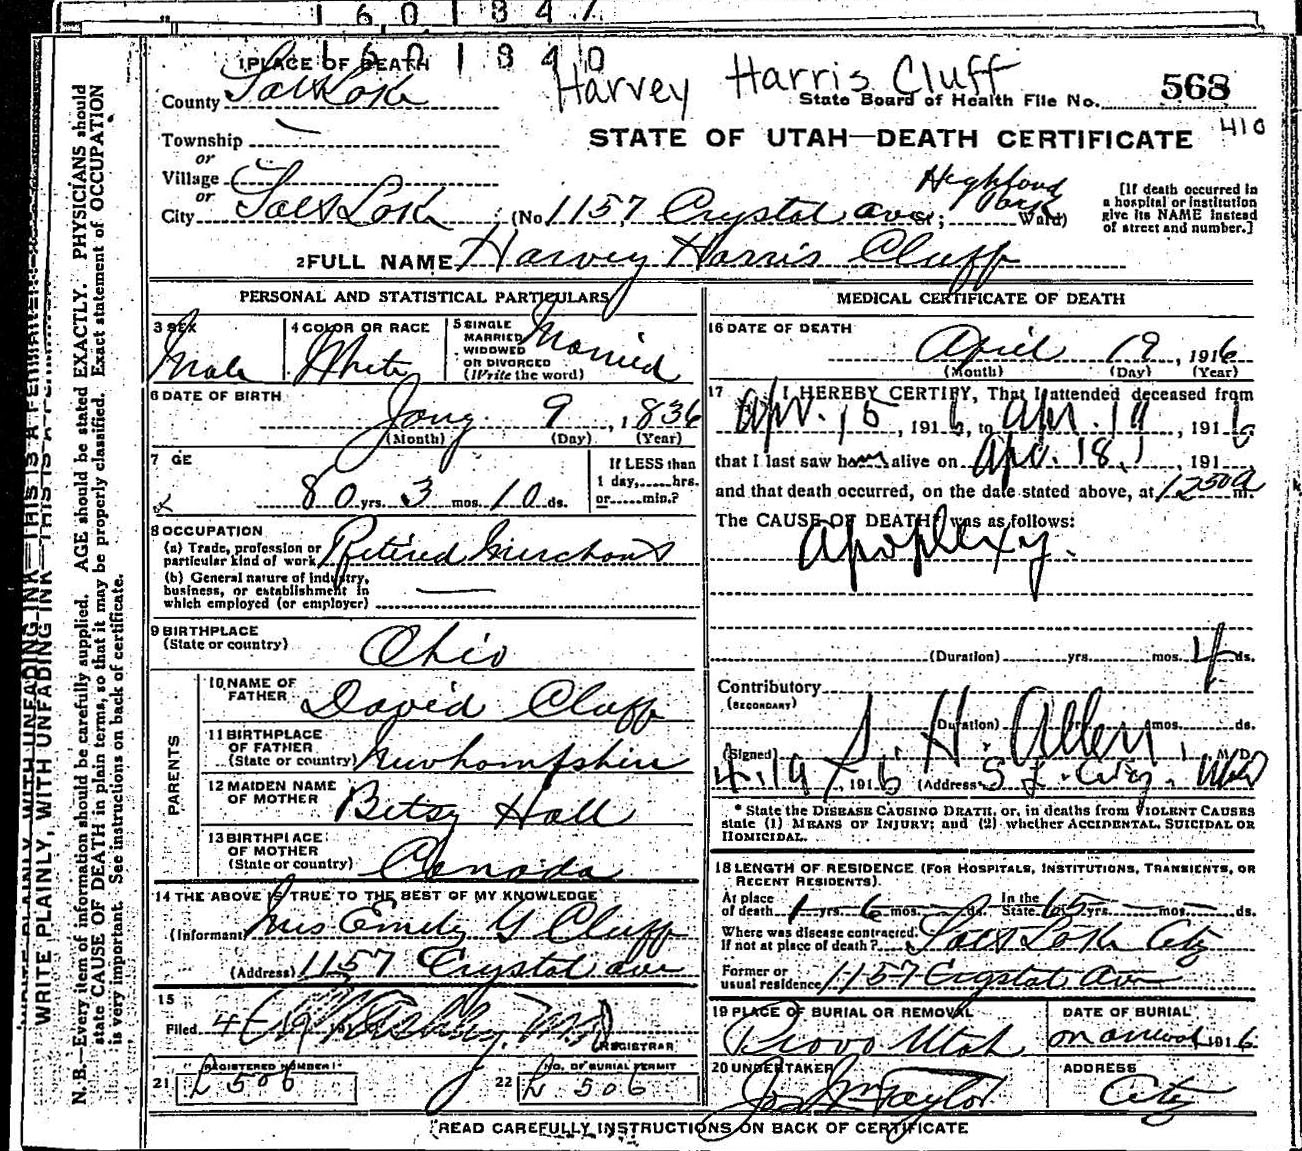 1601847
1601840
1 PLACE OF DEATH
Harvey Harris Cluff
County Salt Lake
State Board of Health File No. 568
410
Township —
STATE OF UTAH—DEATH CERTIFICATE
or
Village
or
City Salt Lake (No. 1157 Crystal ave St.; Highland Park Ward)
[If death occurred in
a hospital or institution
give its NAME instead
of street and number.]
2 FULL NAME Harvey Harris Cluff
PERSONAL AND STATISTICAL PARTICULARS
3 SEX Male
4 COLOR OR RACE White
5 SINGLE
MARRIED
WIDOWED
OR DIVORCED
(Write the word) Married
6 DATE OF BIRTH
Jany 9, 1836
(Month) (Day) (Year)
7 GE
80 yrs. 3 mos. 10 ds.
If LESS than
1 day,......hrs.
or......min.?
8 OCCUPATION
(a) Trade, profession or
particular kind of work Retired Merchant
(b) General nature of industry,
business, or establishment in
which employed (or employer) —
9 BIRTHPLACE
(State or country) Ohio
PARENTS
10 NAME OF
FATHER David Cluff
11 BIRTHPLACE
OF FATHER
(State or country) Newhampshire
12 MAIDEN NAME
OF MOTHER Betsy Hall
13 BIRTHPLACE
OF MOTHER
(State or country) Canada
14 THE ABOVE IS TRUE TO THE BEST OF MY KNOWLEDGE
(Informant) Mrs Emily G Cluff
(Address) 1157 Crystal ave
15
Filed 4
REGISTRAR
REGISTERED NUMBER
21 L 506
NO. OF BURIAL PERMIT
22 L 506
MEDICAL CERTIFICATE OF DEATH
16 DATE OF DEATH
April 19, 1916
(Month) (Day) (Year)
17 I HEREBY CERTIFY, That I attended deceased from
Apr. 15, 1916, to Apr. 19, 1916
that I last saw him alive on Apr. 18, 191
and that death occurred, on the date stated above, at 1250 a m.
The CAUSE OF DEATH* was as follows:
Apoplexy.
(Duration) yrs. mos. 4 ds.
Contributory
(SECONDARY)
(Duration) yrs. mos. ds.
(Signed) S. H. Allen, M.D.
4/19, 1916 (Address) S. L. City, Utah
* State the DISEASE CAUSING DEATH, or, in deaths from VIOLENT CAUSES
state (1) MEANS OF INJURY; and (2) whether ACCIDENTAL, SUICIDAL OR
HOMICIDAL.
18 LENGTH OF RESIDENCE (FOR HOSPITALS, INSTITUTIONS, TRANSIENTS, OR
RECENT RESIDENTS).
At place
of death 1 yrs. 6 mos. — ds. In the
State 65 yrs. — mos. — ds.
Where was disease contracted,
If not at place of death? Salt Lake City
Former or
usual residence 1157 Crystal Ave
19 PLACE OF BURIAL OR REMOVAL
Provo Utah
DATE OF BURIAL
1916
20 UNDERTAKER
Jos Wm Taylor
ADDRESS
City
READ CAREFULLY INSTRUCTIONS ON BACK OF CERTIFICATE
WRITE PLAINLY, WITH UNFADING INK—THIS IS A PERMANENT
N. B.—Every item of information should be carefully supplied. AGE should be stated EXACTLY. PHYSICIANS should
state CAUSE OF DEATH in plain terms, so that it may be properly classified. Exact statement of OCCUPATION
is very important. See instructions on back of certificate.